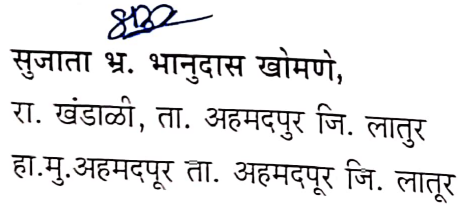 सुजाता भ्र. भानुदास खोमणे,
रा. खंडाळी, ता. अहमदपुर जि. लातुर
हा.मु.अहमदपूर ता. अहमदपूर जि. लातूर